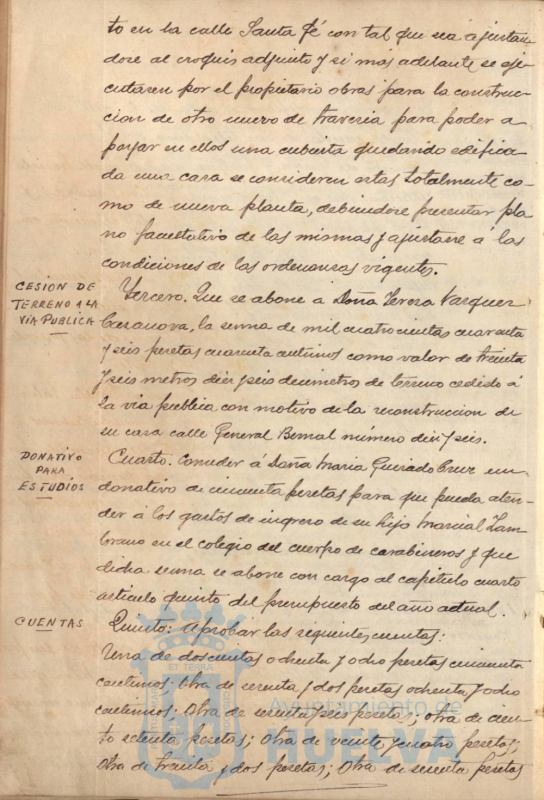 to en la calle Santa Fé con tal que sea ajustan
dose al croquis adjunto y si más adelante se eje
cutaren por el propietario obras para la construc
cion de otro nuevo de traveria para poder a
poyar en ellos una cubierta quedando edifica
da una casa se consideren estas totalmente co
mo de nueva planta, debiendose presentar pla
no facultativo de las mismas y ajustarse á las
condiciones de las ordenanzas vigentes.
CESION DE
TERRENO A LA
VIA PUBLICA
Tercero. Que se abone á Doña Teresa Vazquez
Casanova, la suma de mil cuatrocientas cuarenta
y seis pesetas cuarenta centimos como valor de treinta
y seis metros diez y seis decimetros de terreno cedido á
la via publica con motivo de la reconstruccion de
su casa calle General Bernal número diez y seis.
DONATIVO
PARA
ESTUDIOS
Cuarto. Conceder á Doña Maria Guirado Cruz un
donativo de cincuenta pesetas para que pueda aten
der á los gastos de ingreso de su hijo Marcial Zam
brano en el colegio del cuerpo de carabineros y que
dicha suma se abone con cargo al capitulo cuarto
articulo quinto del presupuesto del año actual.
CUENTAS
Quinto: Aprobar las siguientes cuentas:
Una de doscientas ochenta y ocho pesetas cincuenta
centimos; Otra de setenta y dos pesetas ochenta y ocho
centimos: Otra de setenta y seis pesetas; otra de cien
to setenta pesetas; Otra de veinte y cuatro pesetas;
Otra de treinta y dos pesetas; Otra de sesenta pesetas
ET TERRA
Ayuntamiento de
HUELVA